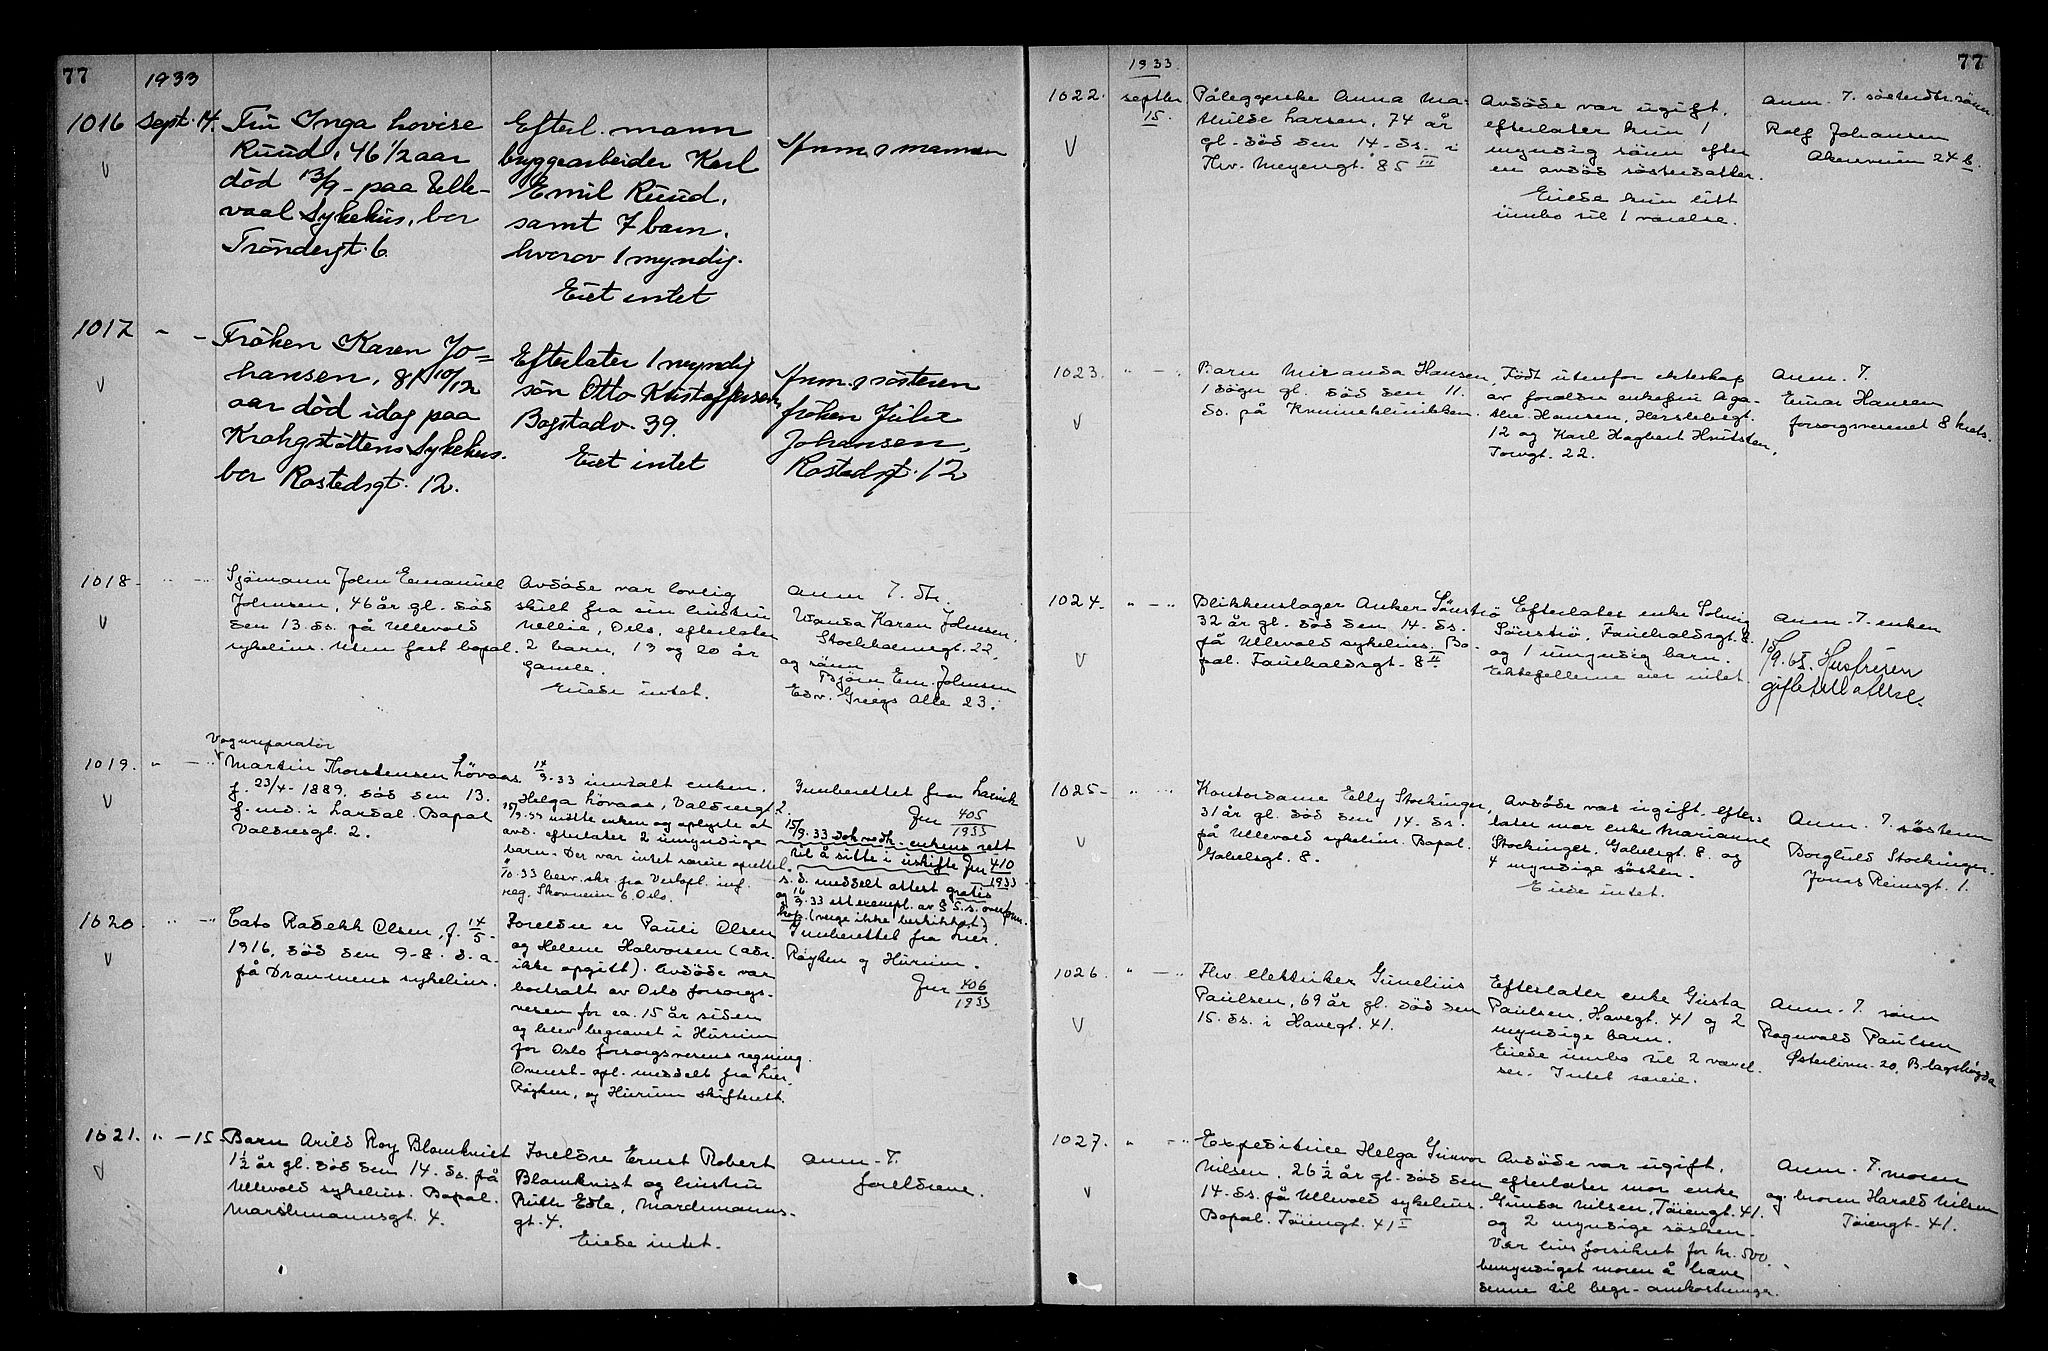 77
1933
1016
Sept. 14.
Fru Inga Lovise
Ruud, 46 1/2 aar
død 13/9 - paa Ulle-
vaal Sykehus, bor
Trøndergt. 6.
Efterl. mann
byggearbeider Karl
Emil Ruud,
samt 7 barn,
hvorav 1 myndig.
Eiet intet
Anm. mannen
1017
Frøken Karen Jo-
hansen, 81 10/12
aar død idag paa
Krohgstøttens Sykehus.
bor Rostedsgt. 12.
Efterlater 1 myndig
søn Otto Kristoffersen,
Bogstadv. 39.
Eiet intet
Anm. søsteren
frøken Julie
Johansen,
Rostedsgt. 12
1018
Sjømann John Emanuel
Johnsen, 46 år gl. død
den 13. ds. på Ullevold
sykehus. Uten fast bopal.
Avdøde var lovlig
skilt fra sin hustru
Nellie, Oslo, efterlater
2 barn, 13 og 20 år
gamle.
Eiede intet.
Anm. 7. dtr.
Wanda Karen Johnsen,
Stockholmsgt. 22,
og sønn
Bjørn Em. Johnsen
Edv. Griegs Alle 23.
1019.
Vognreparatør
Martin Thorstensen Løvaas
f. 23/4-1889, død den 13.
f. md. i Lardal. Bopal
Valdresgt. 2.
14/9-33 innkalt enken.
Helga Løvaas, Valdresgt. 2.
15/9.33 møtte enken og oplyste at
avd. efterlater 2 umyndige
barn. Der var intet særeie oprettet.
Innberettet fra Larvik
Jnr 405/1933
15/9.33 Dok. medh. enkens rett
til å sitte i uskifte Jnr 410/1933
s. d. meddelt attest gratis
(verge ikke beskikket)
1020
Cato Radekk Olsen, f. 14/5-
1916, død den 9-8. d. a.
på Drammens sykehus.
Foreldre er Pauli Olsen
og Helene Halvorsen (adr.
ikke opgitt). Avdøde var
bortsatt av Oslo forsorgs-
vesen for ca. 15 år siden
og blev begravet i Hurum
for Oslo forsorgsvesens regning.
Ovenst. opl. meddelt fra Lier,
Røyken, og Hurum skifterett.
Innberettet fra Lier,
Røyken og Hurum.
Jnr 406/1933
1021.
15.
Barn Arild Roy Blomkvist
1 1/2 år gl. død den 14. ds. på
Ullevold sykehus. Bopal.
Marskmannsgt. 4.
Foreldre Ernst Robert
Blomkvist og hustru
Ruth Edle, Mardsmanns-
gt. 4.
Eiede intet.
Anm. 7.
foreldrene.
77
1933.
1022.
septbr
15.
Påleggerske Anna Ma-
thilde Larsen, 74 år
gl. død den 14. ds. i
Thv. Meyersgt. 85 III
Avdøde var ugift,
efterlater kun 1
myndig sønn efter
en avdød søsterdatter.
Eiede kun litt
innbo til 1 værelse.
Anm. 7. søsterdtr. sønn.
Rolf Johansen
Akersveien 24 b.
1023.
Barn Miranda Hansen,
1 døgn gl. død den 11.
ds. på Kvinneklinikken.
Født utenfor ekteskap
av foreldre enkefru Aga-
the Hansen, Herslebsgt.
12 og Karl Hagbert Hvitsten,
Torvgt. 22.
Anm. 7.
Einar Hansen
forsorgsvesenet 8 krets.
1024.
Blikkenslager Anker Sønstrø
32 år gl. død den 14. ds.
på Ullevold sykehus. Bo-
pal. Fauchaldsgt. 8 II
Efterlater enke Solveig
Sønstrø, Fauchaldsgt. 8.
og 1 umyndig barn.
Ektefellene eier intet
Anm. 7. enken
Husfruen
1025-
Kontordame Elly Stockinger,
31 år gl. død den 14. ds.
på Ullevold sykehus. Bopal.
Gabelsgt. 8.
Avdøde var ugift, efter-
later mor enke Marianne
Stockinger, Gabelsgt. 8. og
4 myndige søsken.
Eiede intet.
Anm. 7. søsteren
Borghild Stockinger.
Jonas Reinsgt. 1.
1026.
Fhv. elektriker Gunelius
Paulsen, 69 år gl. død den
15. ds. i Havegt. 41.
Efterlater enke Gusta
Paulsen, Havegt. 41 og 2
myndige barn.
Eiede innbo til 2 værel-
ser. Intet særeie.
Anm. 7. sønn
Ragnvald Paulsen
Østerlivn. 20,
1027.
Expeditrice Helga Gunvor
Nilsen, 26 1/2 år gl. død den
14. ds. på Ullevold sykehus.
Bopal. Tøiengt. 41 I
Avdøde var ugift,
efterlater mor enke
Gunda Nilsen, Tøiengt. 41.
og 2 myndige søsken.
Var livsforsikret for kr. 500.-
bemyndiget moren å heve
denne til begr.-omkostninger.
Anm. 7. moren
og broren Harald Nilsen
Tøiengt. 41.